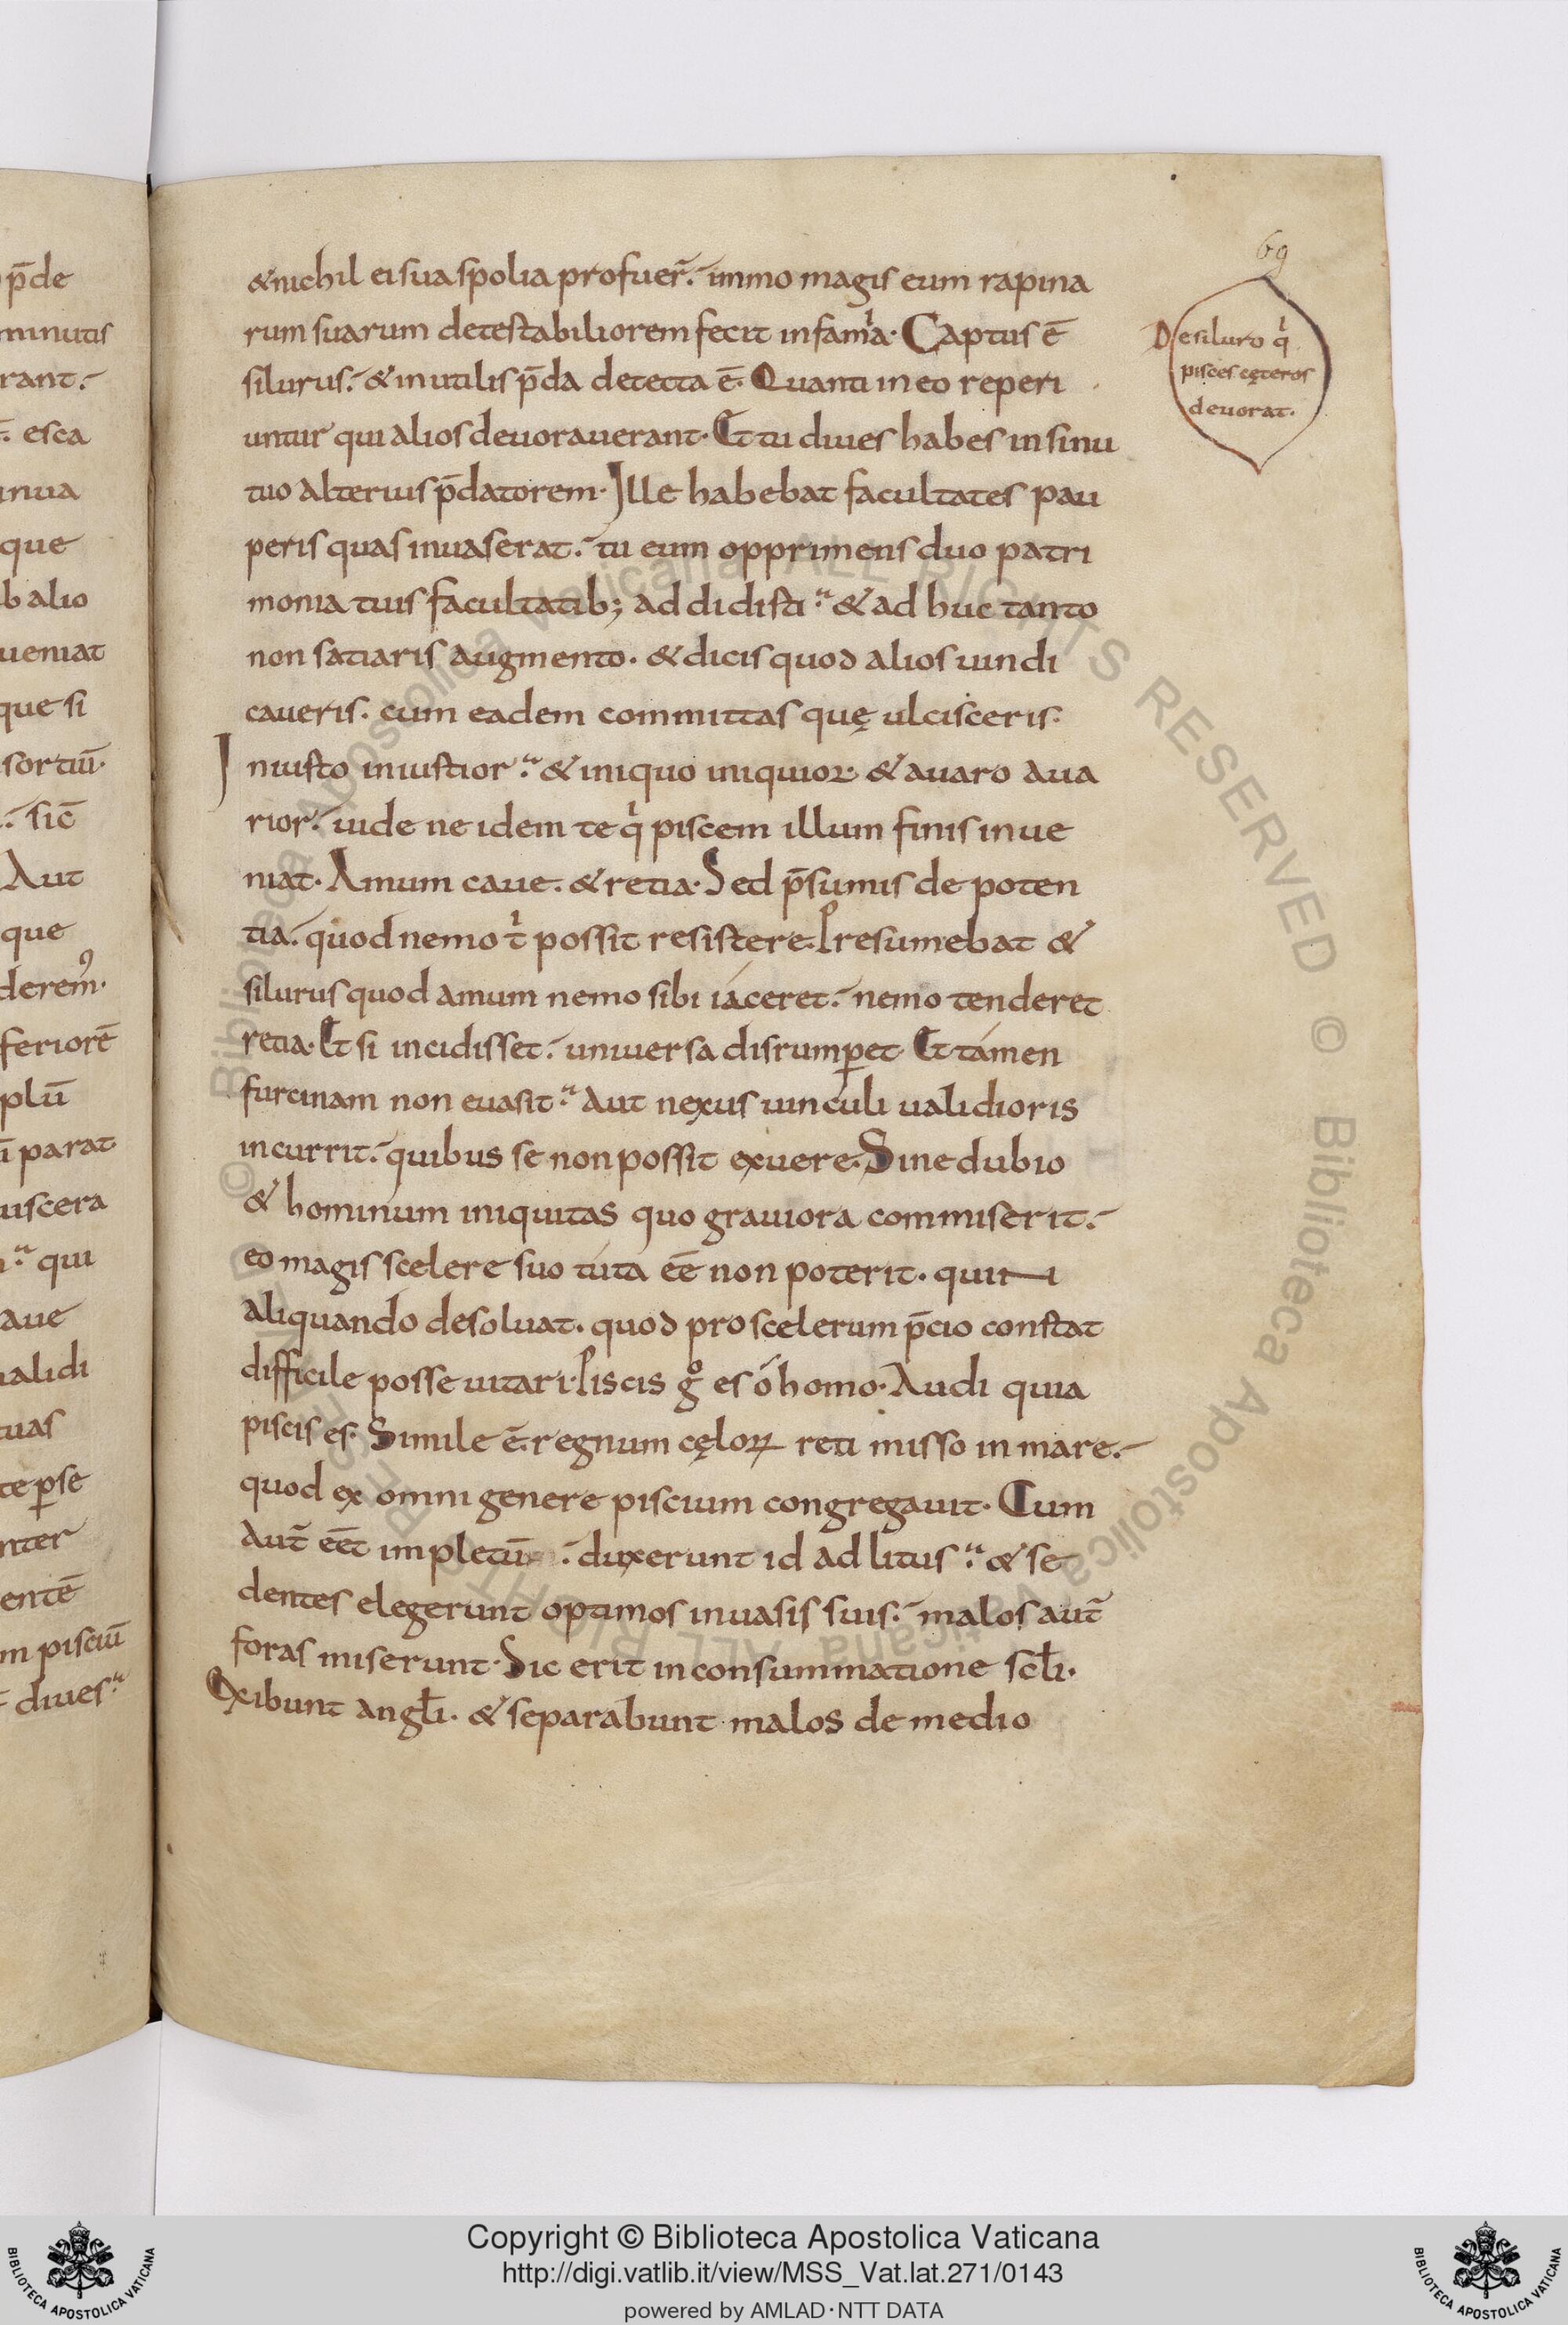 p̄de
minutis
rant.
esca
inua
que
b alio
ueniat
que si
sortiū.
sic̄
Aut
que
derem᾽.
feriorē
plū
parat
uiscera
qui
aue
ualidi
tuas
te ꝑ se
nter
entē
m pisciū
diues
69
De siluro qͥ
pisces cęteros
deuorat.
& nichil ei sua spolia profuer̄. immo magis eum rapina
rum suarum detestabiliorem fecit infamͥa. Captus ē
silurus. & inutilis p̄da detecta ē. Quanti in eo reperi
untur qui alios deuorauerant. Et tu diues habes in sinu
tuo alterius p̄datorem. Ille habebat facultates pau
peris quas inuaserat. tu eum opprimens duo patri
monia tuis facultatib; addidisti. & ad huc tanto
non satiaris augmento. & dicis quod alios uindi
caueris. cum eadem committas quę ulcisceris.
Iniusto iniustior. & iniquo iniquior. & auaro aua
rior. uide ne idem te qͥ piscem illum finis inue
niat. Amum caue. & retia. Sed p̄sumis de poten
tia. quod nemo tͥ possit resistere. Presumebat &
silurus quod amum nemo sibi iáceret. nemo tenderet
retia. Et si incidisset. uniuersa disrumꝑet. Et támen
furcinam non euasit. aut nexus uinculi ualidioris
incurrit. quibus se non possit exuere. Sine dubio
& hominum iniquitas quo grauiora commiserit.
eo magis scelere suo túta eē non poterit. quin
aliquando desoluat. quod pro scelerum p̄cio constat
difficile posse uitari. Piscis gͦ es ó homo. Audi quia
piscis es. Simile ē regnum cęloꝝ reti misso in mare.
quod ex omni genere piscium congregauit. Cum
aut̄ eēt impletū. duxerunt id ad litus. & se
dentes elegerunt optimos in uasis suis. malos aut̄
foras miserunt. Sic erit in consummatione scƚi.
Exibunt angƚi. & separabunt malos de medio
Copyright © Biblioteca Apostolica Vaticana
http://digi.vatlib.it/view/MSS_Vat.lat.271/0143
powered by AMLAD·NTT DATA
BIBLIOTECA APOSTOLICA VATICANA
BIBLIOTECA APOSTOLICA VATICANA